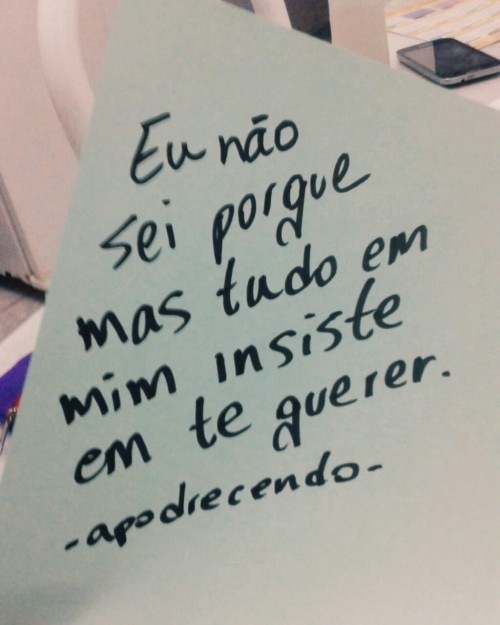 Eu não
sei porque
mas tudo em
mim insiste
em te querer.
-apodrecendo-